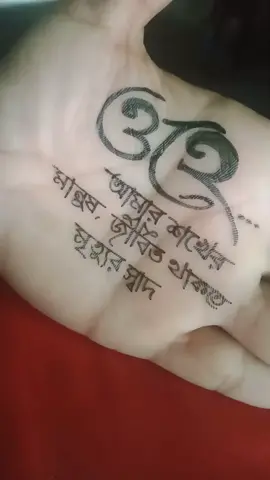 ওহে...
আমার শখের
মানুষ, জীবিত থাকতে
মৃত্যুর স্বাদ